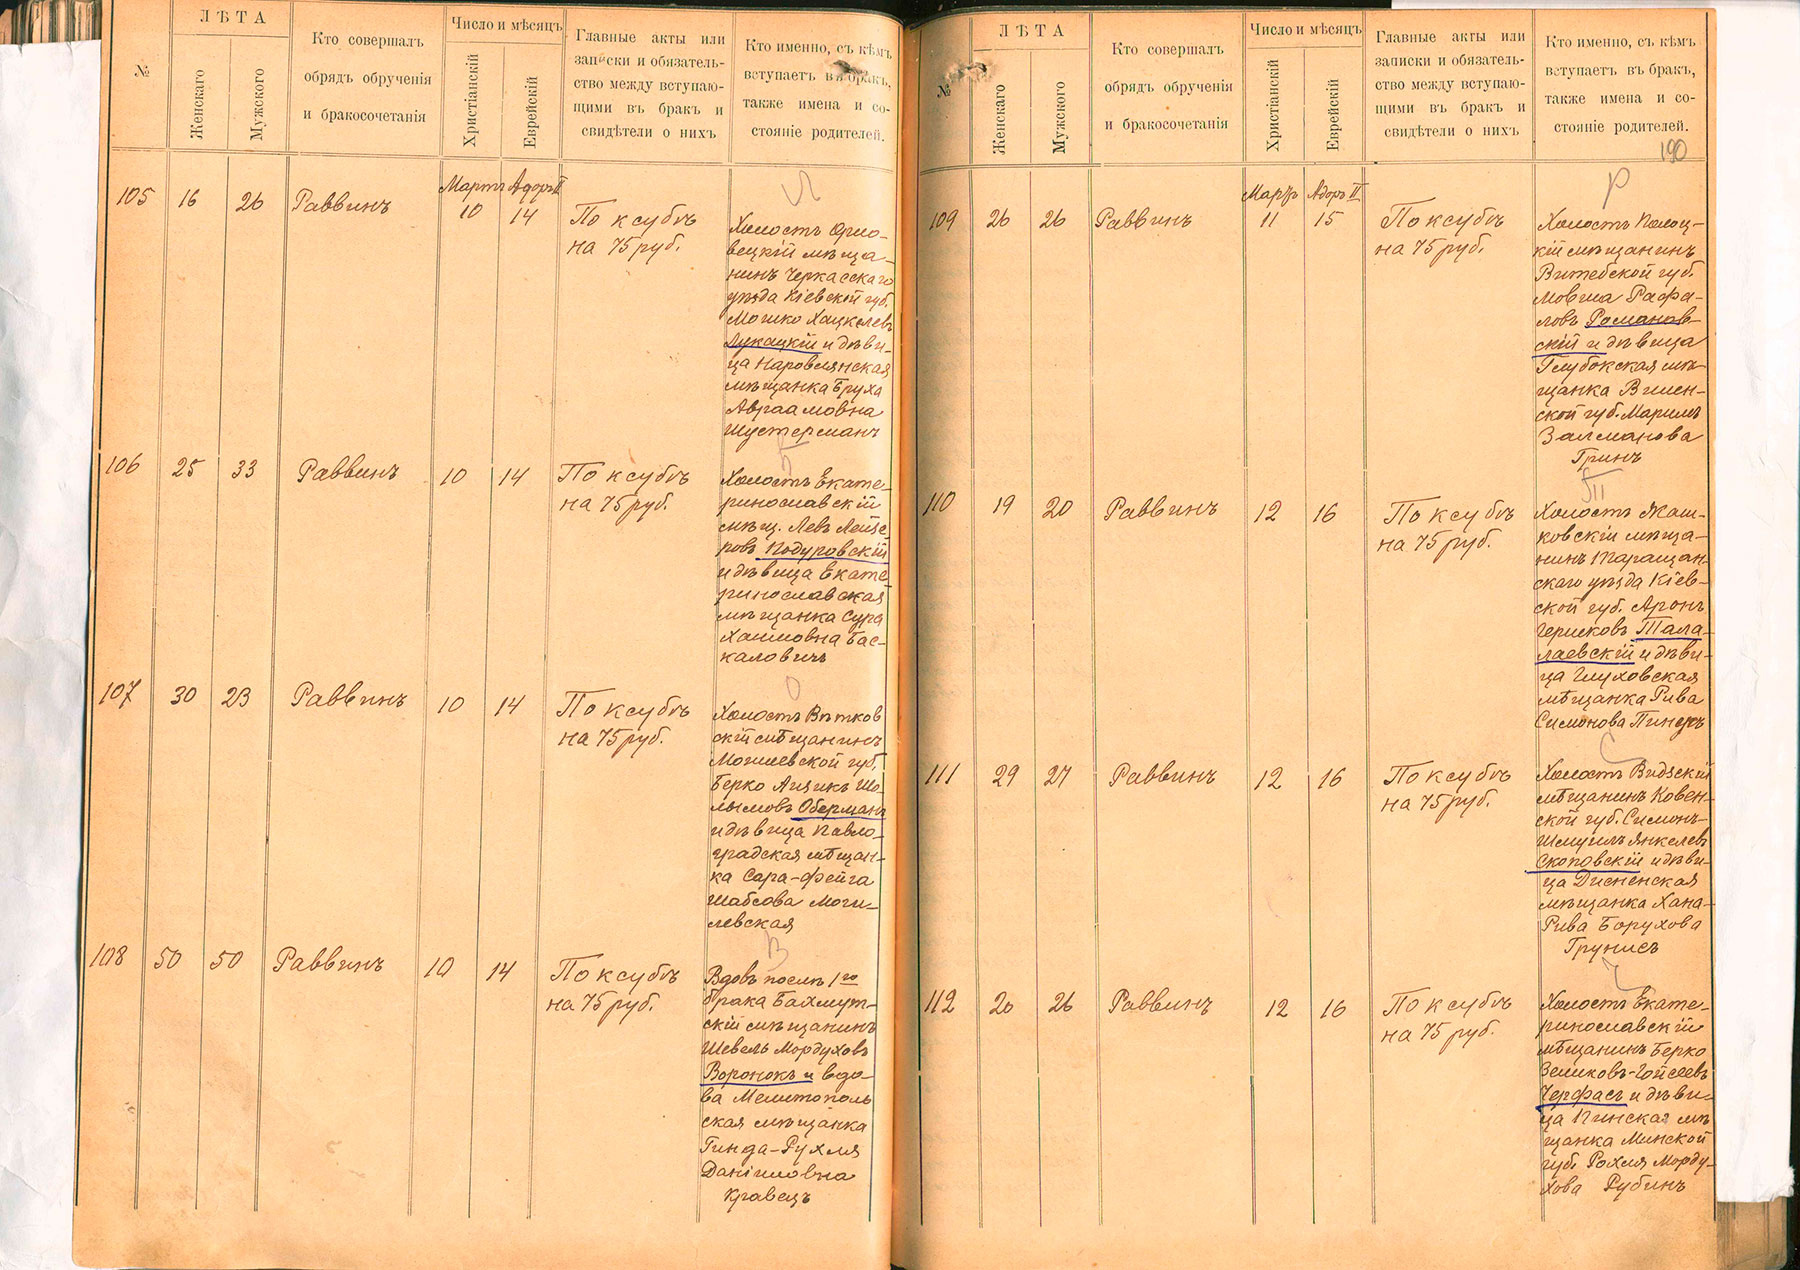 №
ЛѢТА
Женскаго
Мужского
Кто совершалъ
обрядъ обрученія
и бракосочетанія
Число и мѣсяцъ
Христіанскій
Еврейскій
Главные акты или
записки и обязатель-
ство между вступаю-
щими въ бракъ и
свидѣтели о нихъ
Кто именно, съ кѣмъ
вступаетъ въ бракъ,
также имена и со-
стояніе родителей.
Мартъ Адоръ II
105 16 26 Раввинъ 10 14
По ксубѣ
на 75 руб.
Л
Холостъ Орло-
вецкій мѣща-
нинъ Черкасскаго
уѣзда Кіевской губ.
Мошко Хацкелевъ
Лукацкій и дѣви-
ца Наровлянская
мѣщанка Бруха
Авраамовна
Шустерманъ
106 25 33 Раввинъ 10 14
По ксубѣ
на 75 руб.
Холостъ Екате-
ринославскій
мѣщ. Левъ Лейзе-
ровъ Подуровскій
и дѣвица Екате-
ринославская
мѣщанка Сура
Хаимовна Бас-
каловичъ
107 30 23 Раввинъ 10 14
По ксубѣ
на 75 руб.
О
Холостъ Вѣтков
скій мѣщанинъ
Могилевской губ.
Берко Аизикъ Шо-
лымовъ Оберманъ
и дѣвица Павло-
градская мѣщан-
ка Сара-Фейга
Шабсова Моги-
левская
108 50 50 Раввинъ 10 14
По ксубѣ
на 75 руб.
В
Вдовъ послѣ 1го
брака Бахмут-
скій мѣщанинъ
Шевель Мордуховъ
Воронокъ и вдо-
ва Мелитополь
ская мѣщанка
Гинда-Рухля
Даніиловна
Кравецъ
№
ЛѢТА
Женскаго
Мужского
Кто совершалъ
обрядъ обрученія
и бракосочетанія
Число и мѣсяцъ
Христіанскій
Еврейскій
Главные акты или
записки и обязатель-
ство между вступаю-
щими въ бракъ и
свидѣтели о нихъ
Кто именно, съ кѣмъ
вступаетъ въ бракъ,
также имена и со-
стояніе родителей.
190
Мартъ Адоръ II
109 26 26 Раввинъ 11 15
По ксубѣ
на 75 руб.
Р
Холостъ Полоц-
кій мѣщанинъ
Витебской губ.
Мовша Рафа-
ловъ Романов-
скій и дѣвица
Глубокская мѣ-
щанка Вилен-
ской губ. Маримъ
Залманова
Гринъ
110 19 20 Раввинъ 12 16
По ксубѣ
на 75 руб.
Холостъ Жаш-
ковскій мѣща-
нинъ Таращан-
скаго уѣзда Кіев-
ской губ. Аронъ
Гершковъ Тала-
лаевскій и дѣви-
ца Глуховская
мѣщанка Рива
Симонова
111 29 27 Раввинъ 12 16
По ксубѣ
на 75 руб.
С
Холостъ Видзскій
мѣщанинъ Ковен-
ской губ. Симонъ-
Шмуилъ Янкелевъ
Скоповскій и дѣви-
ца Дисненская
мѣщанка Хана-
Рива Борухова
Грунисъ
112 20 26 Раввинъ 12 16
По ксубѣ
на 75 руб.
Ч
Холостъ Екате-
ринославскій
мѣщанинъ Берко
Зеликовъ-
Черфасъ и дѣви-
ца Пинская мѣ
щанка Минской
губ. Рохля Морду-
хова Рубинъ